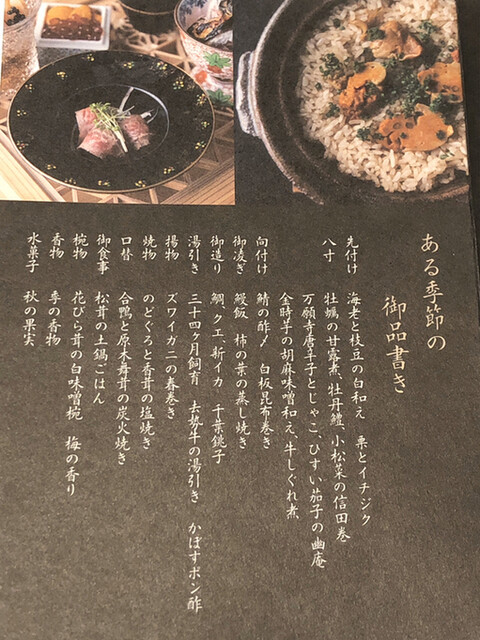 ある季節の
御品書き
先付け　海老と枝豆の白和え　栗とイチジク
八寸　牡蠣の甘露煮、牡丹鱧、小松菜の信田巻
万願寺唐辛子とじゃこ、ひすい茄子の幽庵
金時芋の胡麻味噌和え、牛しぐれ煮
向付け　鯖の酢〆　白板昆布巻き
御凌ぎ　鰻飯　柿の葉の蒸し焼き
御造り　鯛、クエ、新イカ　千葉銚子
湯引き　三十四ヶ月飼育　去勢牛の湯引き　かぼすポン酢
揚物　ズワイガニの春巻き
焼物　のどぐろと香茸の塩焼き
口替　合鴨と原木舞茸の炭火焼き
御食事　松茸の土鍋ごはん
椀物　花びら茸の白味噌椀　梅の香り
香物　季の香物
水菓子　秋の果実